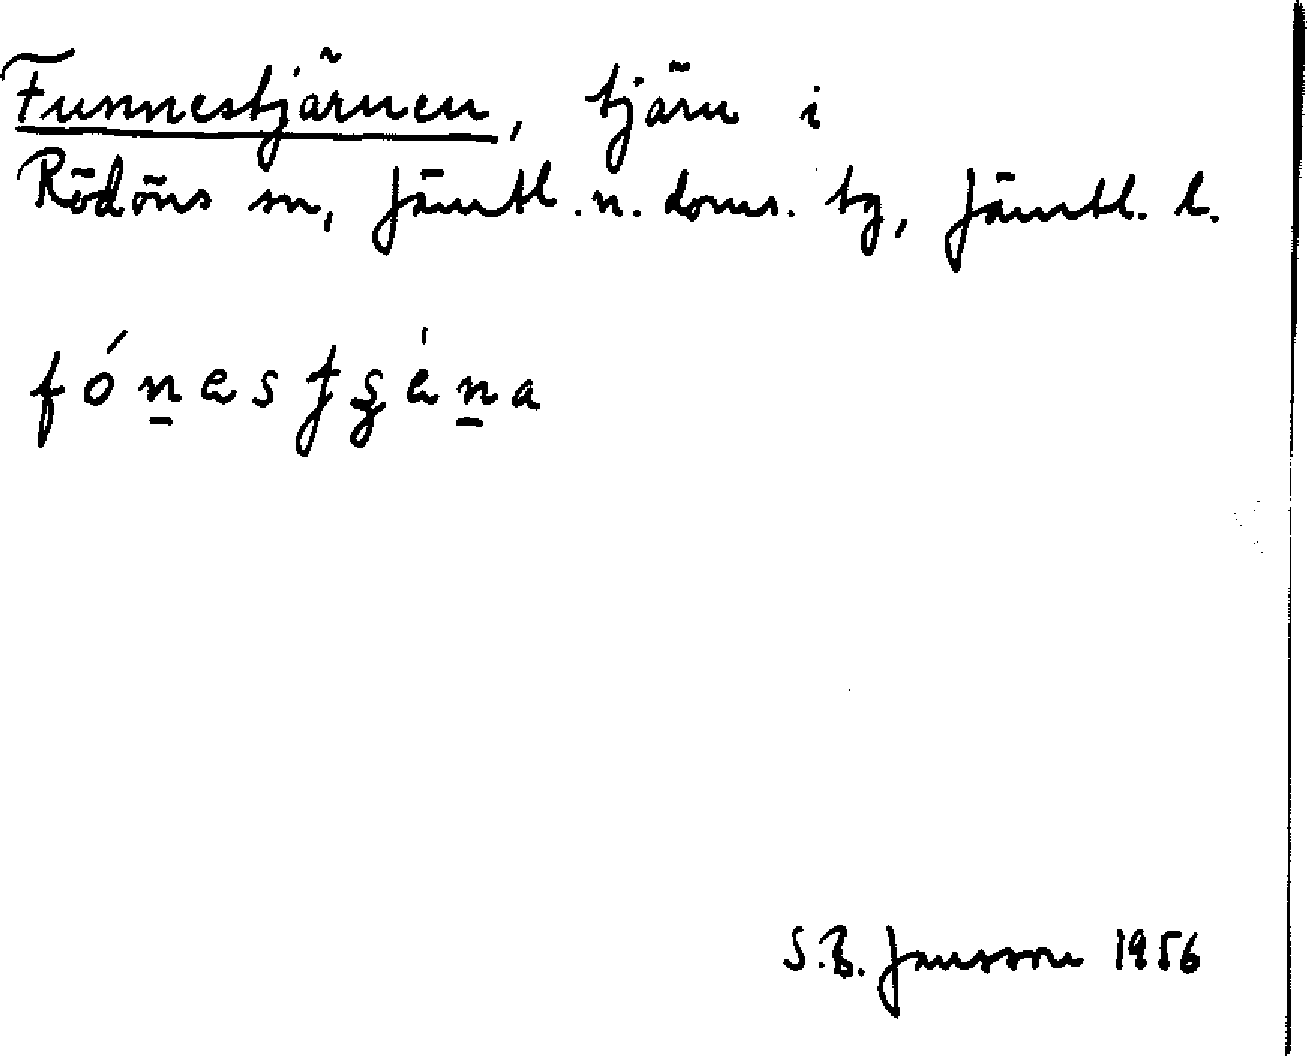 Funnestjärnen, tjärn i
Rödöns sn, Jämtl. n. doms. tg, Jämtl. l.
S.B. Jansson 1956